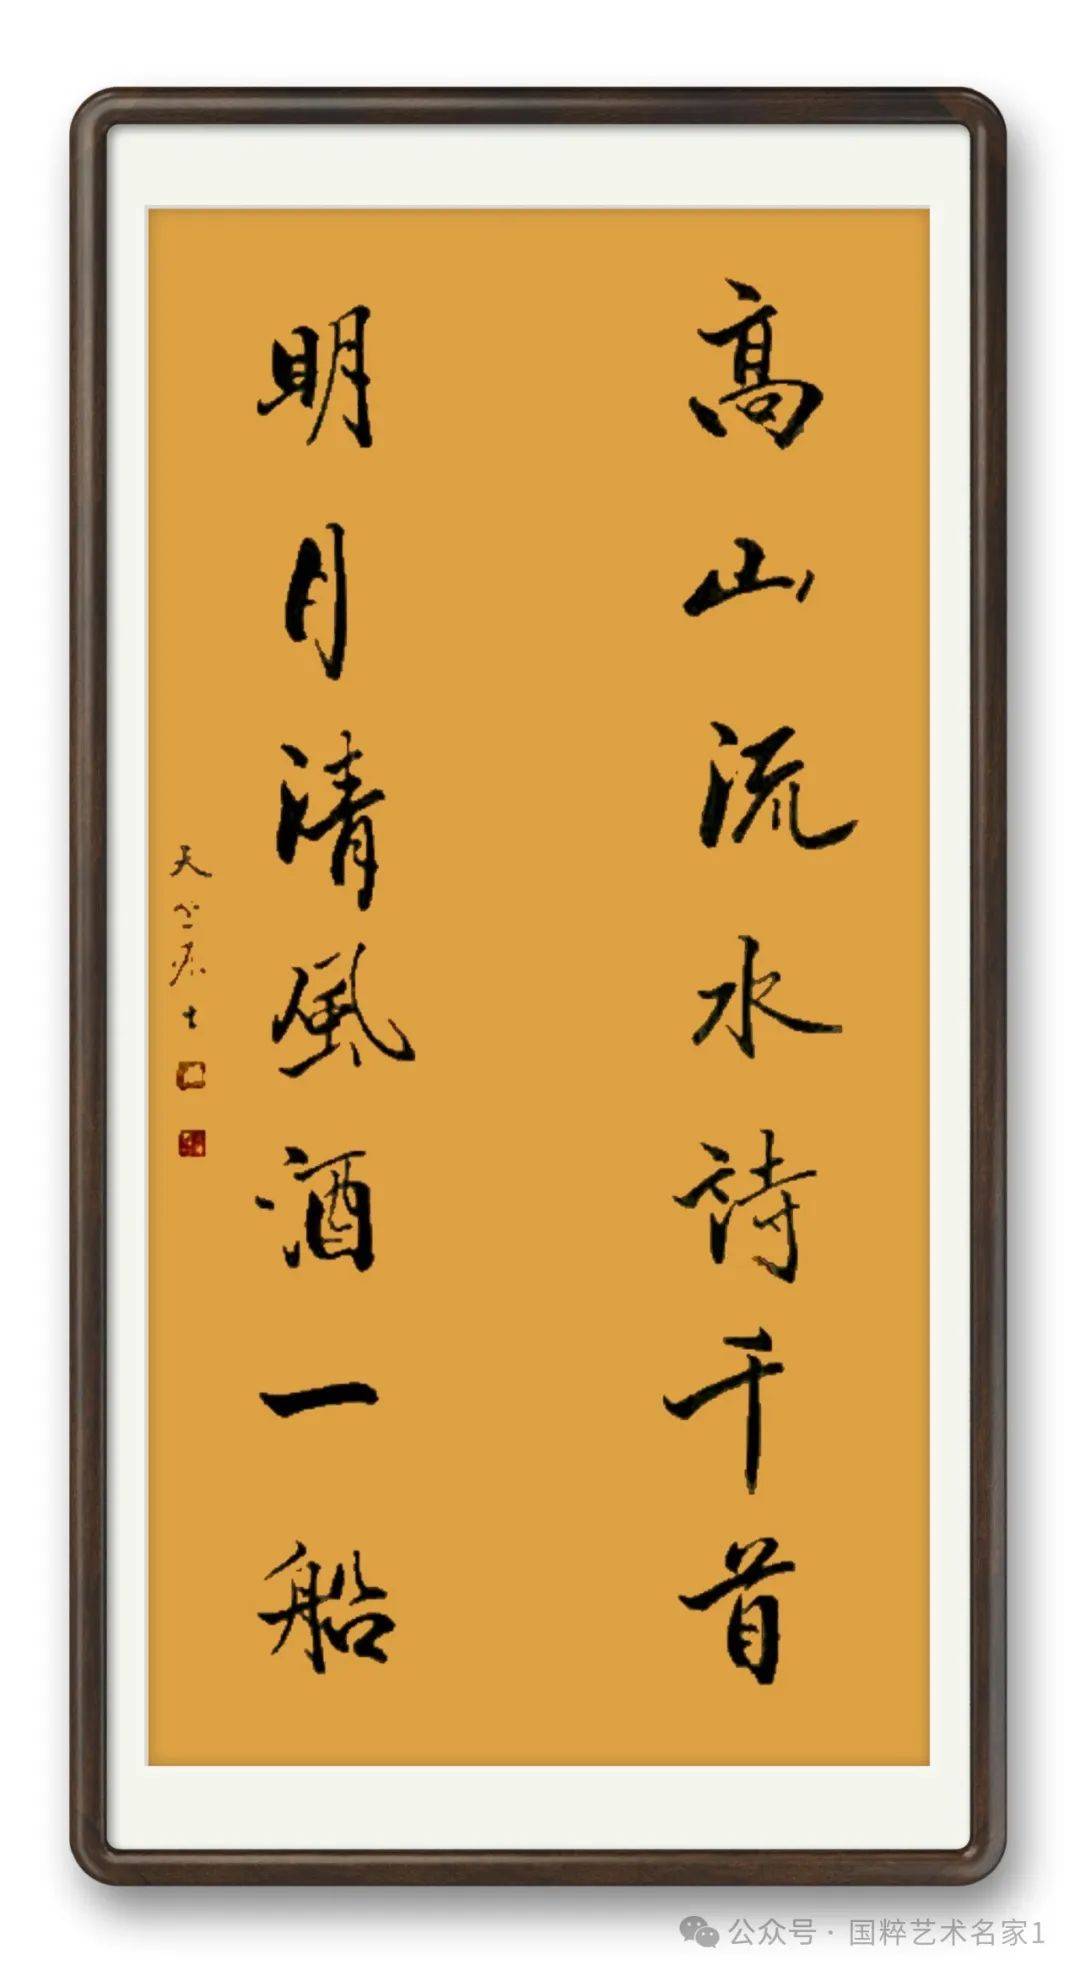 高山流水诗千首
明月清風酒一船
天
士
公众号·国粹艺术名家1